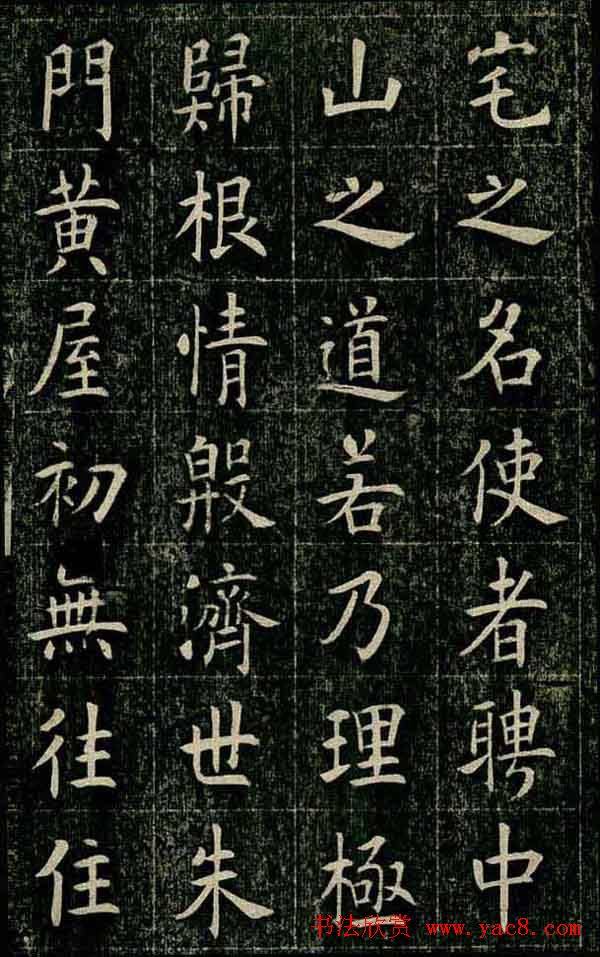 宅之名使者聘中
山之道若乃理極
歸根情殷濟世朱
門黄屋初無往住
书法欣赏 www.yac8.com